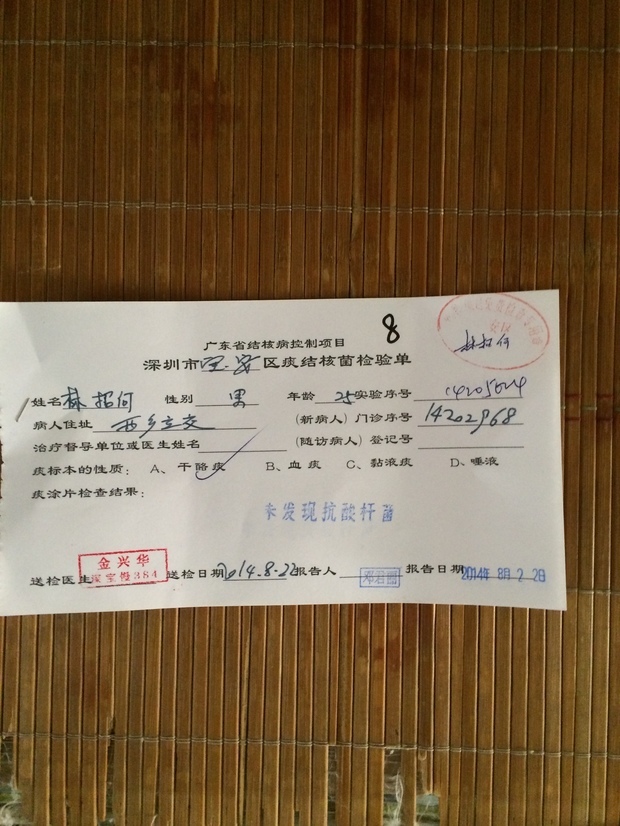 广东省结核病控制项目
8
深圳市宝安区痰结核菌检验单
姓名 林招何 性别 男 年龄 25 实验序号
病人住址 西乡 (新病人)门诊序号 14202968
治疗督导单位或医生姓名 (随访病人)登记号
痰标本的性质: A、干酪痰 B、血痰 C、黏液痰 D、唾液
痰涂片检查结果:
未发现抗酸杆菌
送检医生 金兴华 送检日期 2014.8.22 报告人 报告日期 2014年8月22日
深宝慢384